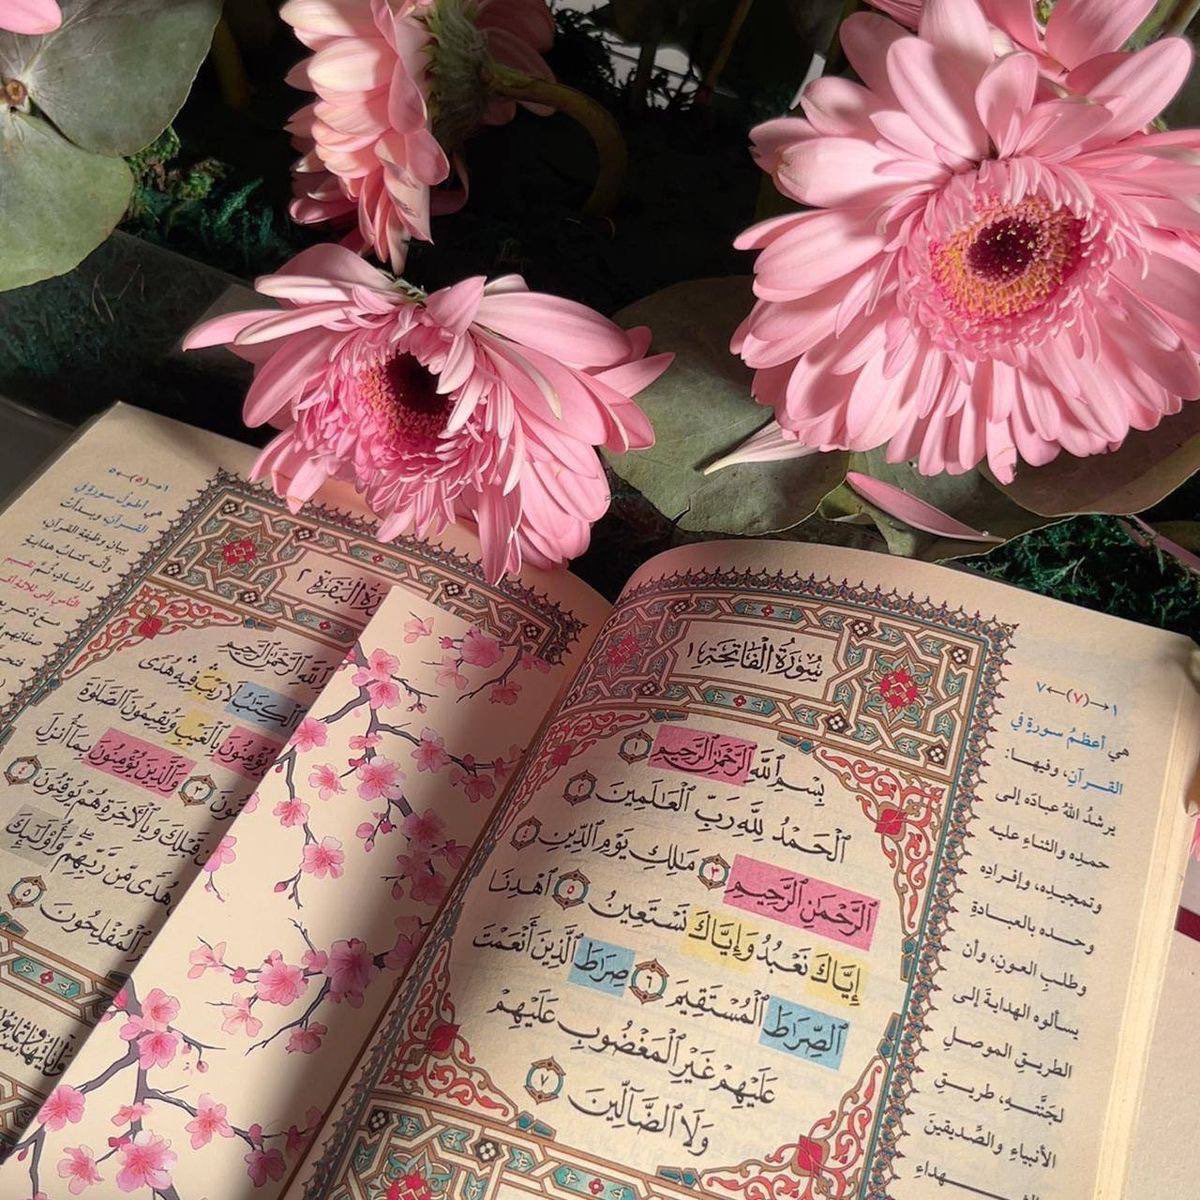 سُورَةُ الْفَاتِحَةِ ١
بِسْمِ ٱللَّهِ ٱلرَّحْمَٰنِ ٱلرَّحِيمِ ١
ٱلْحَمْدُ لِلَّهِ رَبِّ ٱلْعَٰلَمِينَ ٢
ٱلرَّحْمَٰنِ ٱلرَّحِيمِ ٣ مَٰلِكِ يَوْمِ ٱلدِّينِ ٤
إِيَّاكَ نَعْبُدُ وَإِيَّاكَ نَسْتَعِينُ ٥ ٱهْدِنَا
ٱلصِّرَٰطَ ٱلْمُسْتَقِيمَ ٦ صِرَٰطَ ٱلَّذِينَ أَنْعَمْتَ
عَلَيْهِمْ غَيْرِ ٱلْمَغْضُوبِ عَلَيْهِمْ
وَلَا ٱلضَّآلِّينَ ٧
١→(٧)←٧
هي أعظمُ سورةٍ في
القـرآنِ، وفيهـا:
يرشدُ اللهُ عبادَه إلى
حمدِه والثناءِ عليه
وتمجيدِه، وإفرادِه
وحدَه بالعبادةِ
وطلبِ العونِ، وأن
يسألوه الهدايةَ إلى
الطريقِ الموصلِ
لجنَّتـهِ، طريـقِ
الأنبياءِ والصِّديقينَ
ـهداءِ
سُورَةُ الْبَقَرَةِ ٢
ٱللَّهِ ٱلرَّحْمَٰنِ ٱلرَّحِيمِ
ٱلْكِتَٰبُ لَا رَيْبَ فِيهِ هُدًى
يُؤْمِنُونَ بِٱلْغَيْبِ وَيُقِيمُونَ ٱلصَّلَوٰةَ
٣ وَٱلَّذِينَ يُؤْمِنُونَ بِمَآ أُنزِلَ
قَبْلِكَ وَبِٱلْأَخِرَةِ هُمْ يُوقِنُونَ ٤
هُدًى مِّن رَّبِّهِمْ وَأُو۟لَٰٓئِكَ
ٱلْمُفْلِحُونَ ٥
١→(٥)←٥
هي أطولُ سورةٍ في
القـرآنِ، وبـدأتْ
ببيانِ وظيفةِ القرآنِ،
وأنَّه كتابُ هدايةٍ
وإرشادٍ، ثُم تقسيمِ